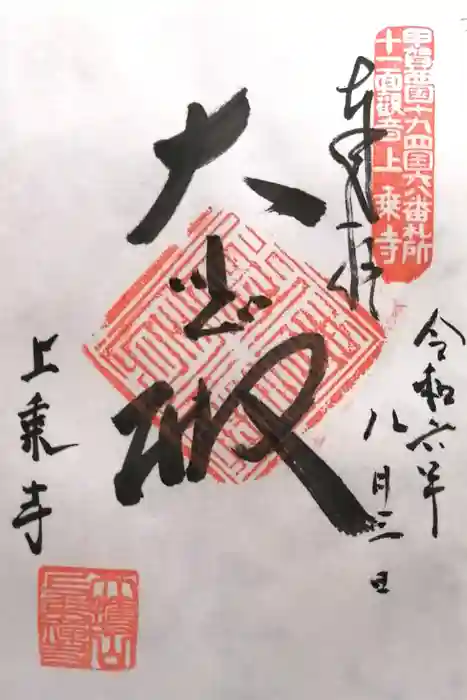 甲賀西国十九四国六八番札所
十一面観音上乗寺
奉拝
令和六年
八月三日
大悲殿
上乗寺